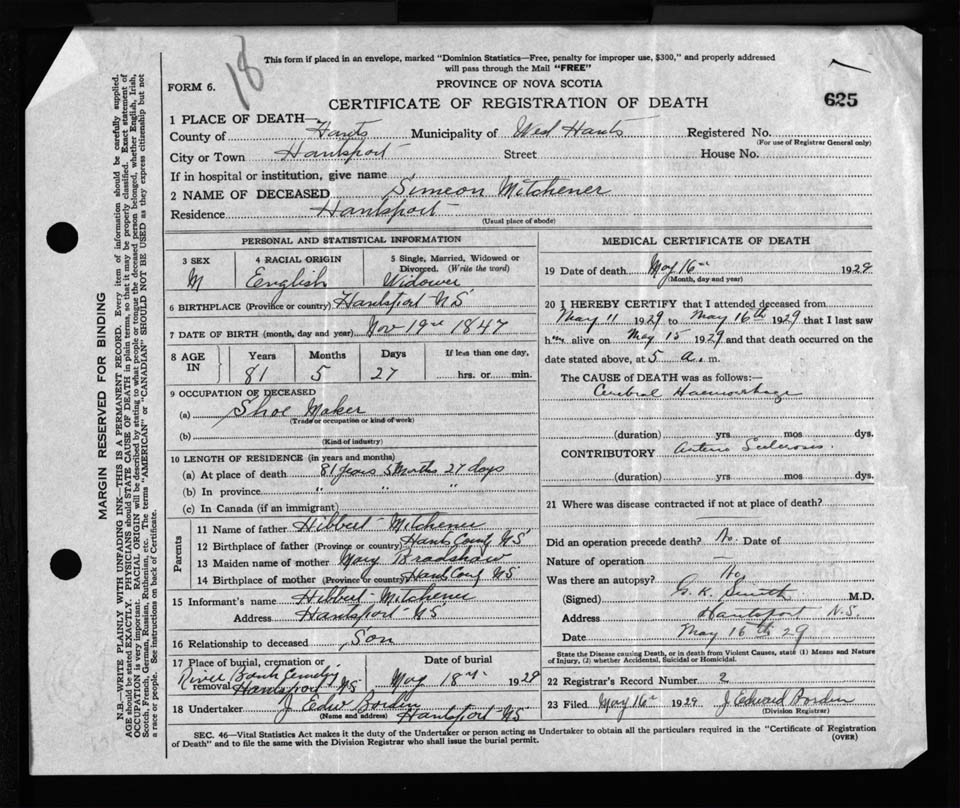 18
This form if placed in an envelope, marked "Dominion Statistics—Free, penalty for improper use, $300," and properly addressed
will pass through the Mail "FREE"
FORM 6.
PROVINCE OF NOVA SCOTIA
CERTIFICATE OF REGISTRATION OF DEATH
625
1 PLACE OF DEATH—
County of Hants Municipality of West Hants Registered No.
(For use of Registrar General only)
City or Town Hantsport Street House No.
If in hospital or institution, give name
2 NAME OF DECEASED Simeon Mitchener
Residence Hantsport
(Usual place of abode)
PERSONAL AND STATISTICAL INFORMATION
3 SEX 4 RACIAL ORIGIN 5 Single, Married, Widowed or
Divorced. (Write the word)
M English Widower
6 BIRTHPLACE (Province or country) Hantsport NS
7 DATE OF BIRTH (month, day and year) Nov 19 1847
8 AGE IN Years Months Days If less than one day,
81 5 27 hrs. or min.
9 OCCUPATION OF DECEASED
(a) Shoe Maker
(Trade or occupation or kind of work)
(b)
(Kind of industry)
10 LENGTH OF RESIDENCE (in years and months)
(a) At place of death 81 years 5 Months 27 days
(b) In province " " "
(c) In Canada (if an immigrant)
Parents
11 Name of father Hibbert Mitchener
12 Birthplace of father (Province or country) Hants County NS
13 Maiden name of mother Mary Bradshaw
14 Birthplace of mother (Province or country) Hants County NS
15 Informant's name Hibbert Mitchener
Address Hantsport NS
16 Relationship to deceased Son
17 Place of burial, cremation or
removal River Bank Cemetery
Hantsport NS
Date of burial
May 18th 1929
18 Undertaker J. Edw Borden
(Name and address) Hantsport NS
MEDICAL CERTIFICATE OF DEATH
19 Date of death May 16th 1929
(Month, day and year)
20 I HEREBY CERTIFY that I attended deceased from
May 11 1929 to May 16th 1929 that I last saw
h im alive on May 15 1929 and that death occurred on the
date stated above, at 5 a. m.
The CAUSE OF DEATH was as follows:—
Cerebral Haemorrhage
(duration) yrs mos dys.
CONTRIBUTORY Arterio Sclerosis
(duration) yrs mos dys.
21 Where was disease contracted if not at place of death?
Did an operation precede death? No. Date of
Nature of operation —
Was there an autopsy? No
(Signed) G. K. Smith M.D.
Address Hantsport N.S.
Date May 16th 29
State the Disease causing Death, or in death from Violent Causes, state (1) Means and Nature
of Injury, (2) whether Accidental, Suicidal or Homicidal.
22 Registrar's Record Number 2
23 Filed May 16th 1929 J Edward Borden
(Division Registrar)
SEC. 46—Vital Statistics Act makes it the duty of the Undertaker or person acting as Undertaker to obtain all the particulars required in the "Certificate of Registration
of Death" and to file the same with the Division Registrar who shall issue the burial permit.
(OVER)
MARGIN RESERVED FOR BINDING
N.B.—WRITE PLAINLY WITH UNFADING INK—THIS IS A PERMANENT RECORD. Every item of information should be carefully supplied.
AGE should be stated EXACTLY. PHYSICIANS should STATE CAUSE OF DEATH in plain terms, so that it may be properly classified. Exact statement of
OCCUPATION is very important. RACIAL ORIGIN will be described by stating to what people or tongue the deceased person belonged, whether English, Irish,
Scotch, French, German, Russian, Ruthenian, etc. The terms "AMERICAN" or "CANADIAN" SHOULD NOT BE USED as they express citizenship but not
a race or people. See instructions on back of Certificate.